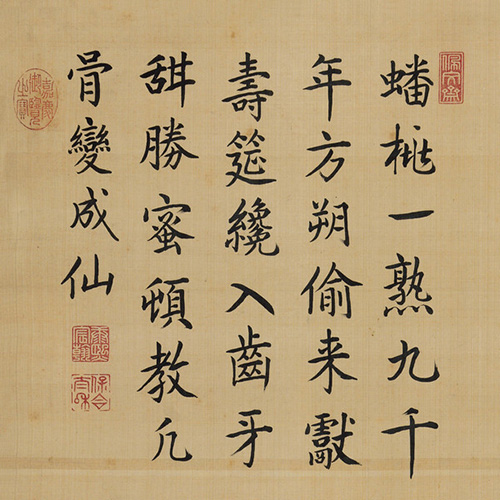 蟠桃一熟九千
年方朔偷来獻
壽筵纔入齒牙
甜勝蜜頓教凡
骨變成仙
嘉慶御覽之寶